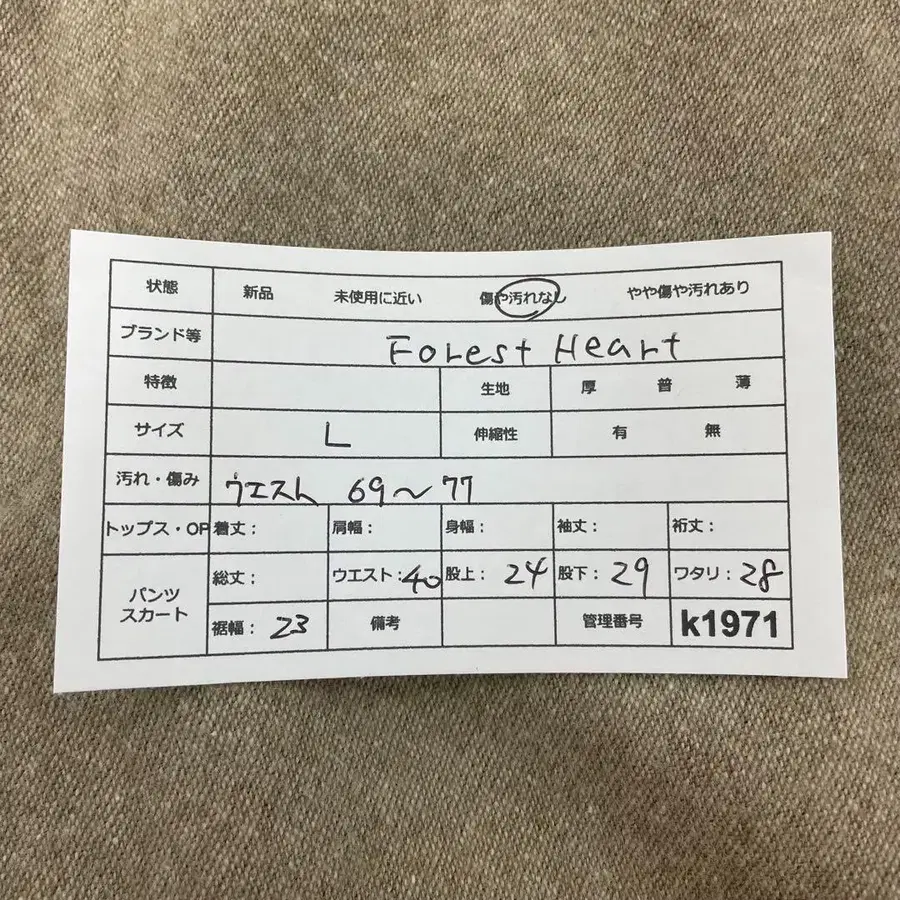 状態 新品 未使用に近い 傷や汚れなし やや傷や汚れあり
ブランド等 Forest Heart
特徴 生地 厚 普 薄
サイズ L 伸縮性 有 無
汚れ・傷み ウエスト 69～77
トップス・OP 着丈： 肩幅： 身幅： 袖丈： 裄丈：
パンツ スカート 総丈： ウエスト：40 股上：24 股下：29 ワタリ：28
裾幅：23 備考 管理番号 k1971